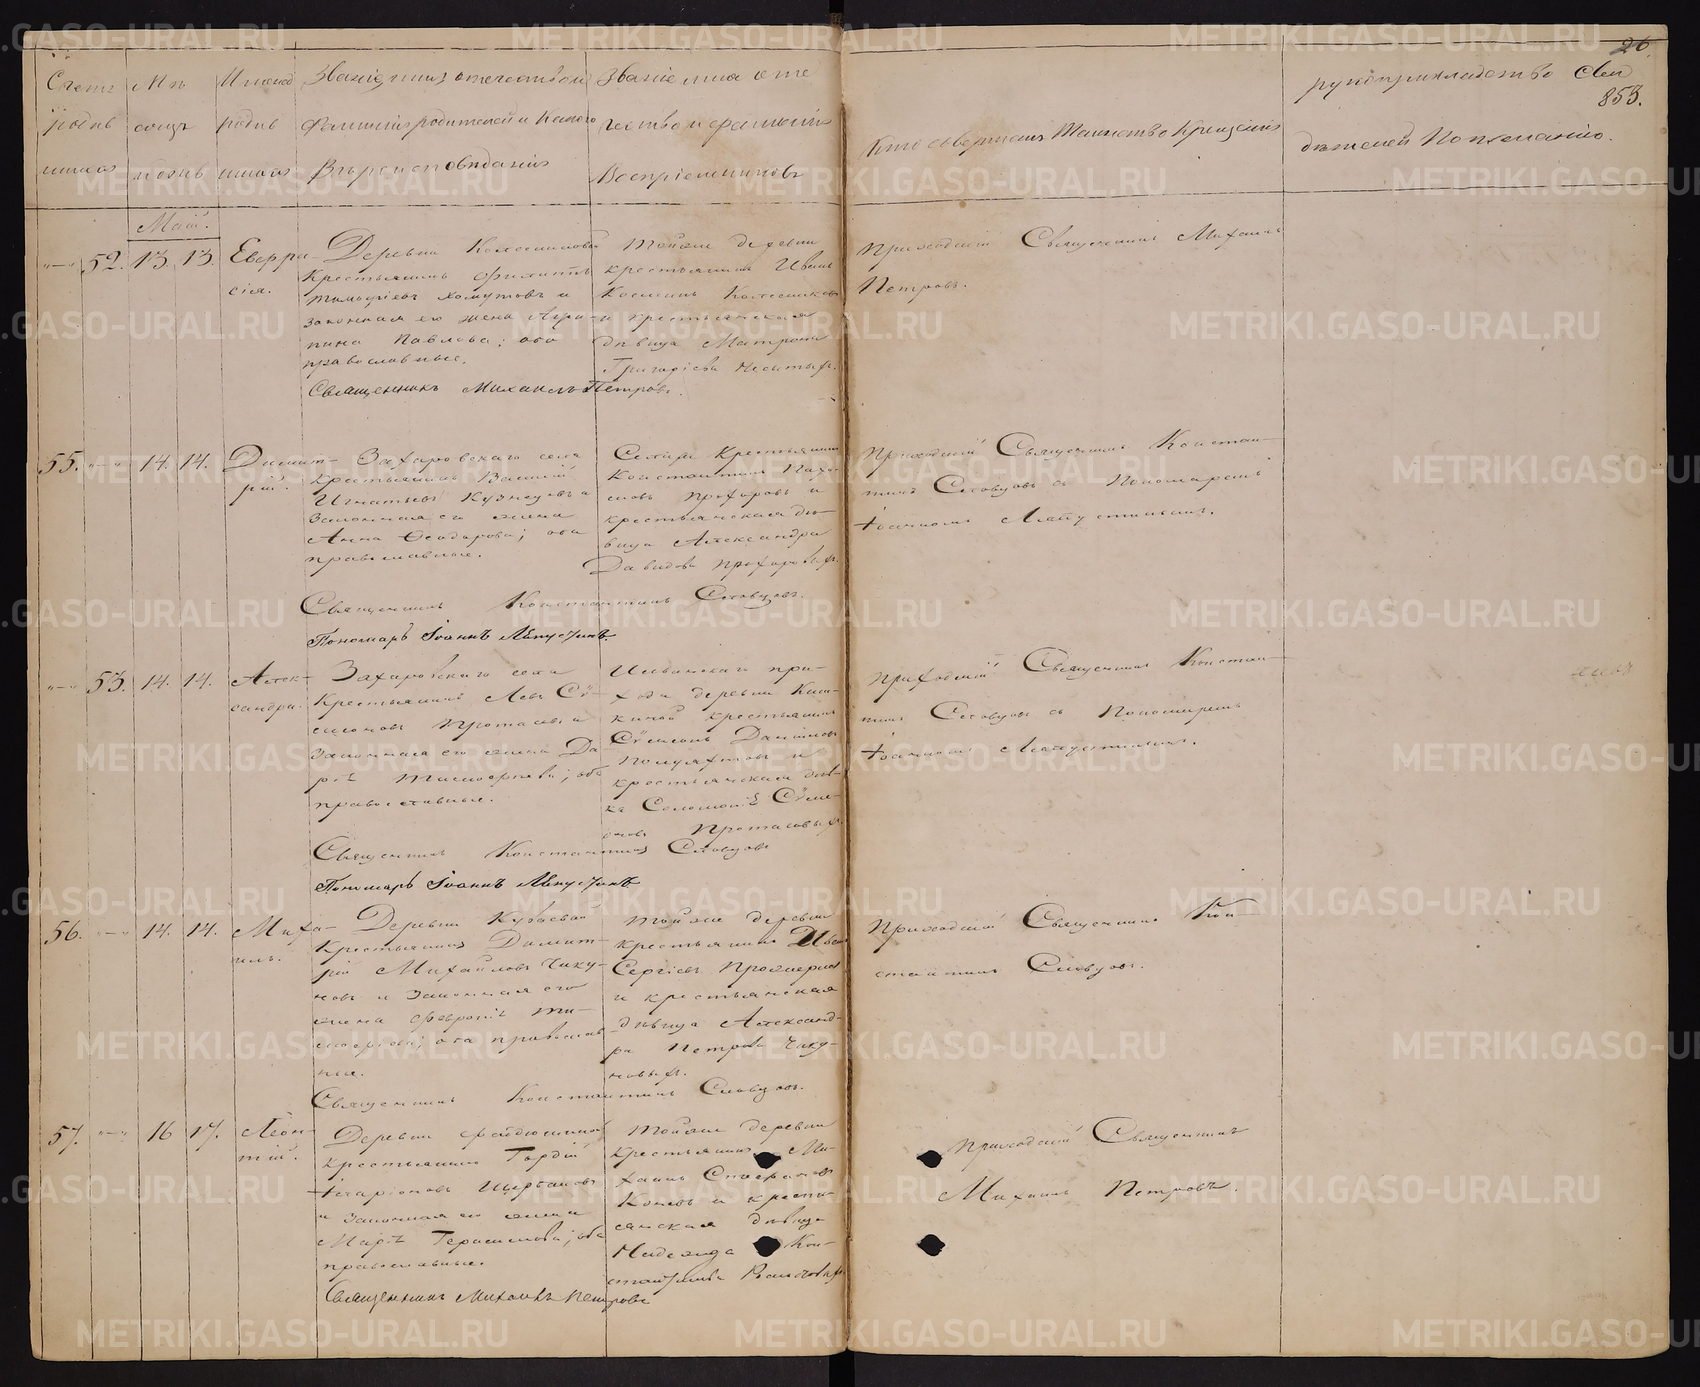 26
853.
Счетъ родив шихся
Мѣ сяцъ
Имена родив шихся
Званіе имя отечество и фамилія родителей и какого Вѣроисповѣданія
Званіе имя оте чество и фамилія Воспріемниковъ
Кто совершалъ Таинство Крещенія
рукоприкладство Сви дѣтелей По желанію.
Май.
52. 13 13. Евпра
сія.
Деревни
Крестьянинъ Филиппъ
Тимофѣевъ Хомутовъ и
законная его жена Агри-
пина Павлова; оба
православные.
Священникъ Михаилъ Петровъ.
Тойже деревни
крестьянинъ Иванъ
Козминъ Колесниковъ
и крестьянская
дѣвица Матрона
Григоріева
Приходскій Священникъ Михаилъ
Петровъ.
55. 14. 14. Димит-
рій.
Захаровскаго села
крестьянинъ Василій
Игнатьевъ Кузнецовъ и
Законная его жена
Анна Ѳеодорова; оба
православные.
Священникъ Константинъ Словцовъ.
Пономарь Іоаннъ Ляпустинъ.
Селъ Крестьянинъ
Константинъ
Прохоровъ и
крестьянская дѣ-
вица Александра
Давидова Прохоровыхъ.
Приходскій Священникъ Констан-
тинъ Словцовъ съ Пономаремъ
Іоанномъ Ляпустинымъ.
53. 14. 14. Алек-
сандра.
Захаровскаго села
Крестьянинъ Левъ Сѵ-
меоновъ Протасовъ и
Законная его жена Да-
рья Тимоферова; оба
православные.
Священникъ Константинъ Словцовъ
Пономарь Іоаннъ Ляпустинъ
при-
хода деревни Каш-
киной крестьянинъ
Сѵмеонъ Даниловъ
Полуяхтовъ и
крестьянская дѣв-
ка Соломонія Сѵме-
онова Протасовыхъ
Приходскій Священникъ Констан-
тинъ Словцовъ съ Пономаремъ
Іоанномъ Ляпустинымъ.
56. 14. 14. Миха-
илъ.
Деревни Кубаевой
Крестьянинъ Димит-
рій Михайловъ Чику-
новъ и Законная его
жена Февронія Ти-
моферова; оба православ
ные.
Священникъ Константинъ Словцовъ.
Тойже деревни
крестьянинъ Иванъ
Сергіевъ
и крестьянская
дѣвица Александ-
ра Петрова Чику-
новыхъ.
Приходскій Священникъ Кон-
стантинъ Словцовъ.
57. 16 17. Леон-
тій.
Деревни Файдюшиной
крестьянинъ Гордій
Иларіоновъ Щербаковъ
и Законная его жена
Марѳа Герасимова; оба
православные.
Священникъ Михаилъ Петровъ
Тойже деревни
крестьянинъ Ми-
хаилъ
Коневъ и кресть-
янская дѣвица
Надежда Кон-
стантинова
Приходскій Священникъ
Михаилъ Петровъ.
METRIKI.GASO-URAL.RU